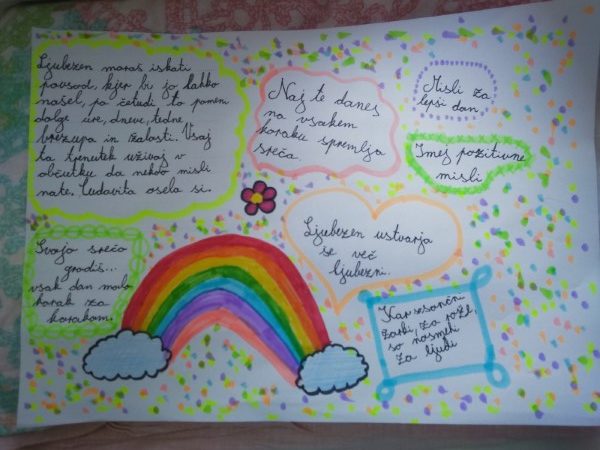 Ljubezen moraš iskati
povsod, kjer bi jo lahko
našel, pa četudi to pomeni
dolge ure, dneve, tedne
brezupa in žalosti. Vsaj
ta trenutek uživaj v
občutku da nekdo misli
nate. Čudovita oseba si.
Naj te danes
na vsakem
koraku spremlja
sreča.
Misli za
lepši dan
Imej pozitivne
misli
Ljubezen ustvarja
še več
ljubezni.
Svojo srečo
gradiš...
vsak dan malo
korak za
korakom.
Kar so sončni
žarki, za rože,
so nasmehi
za ljudi